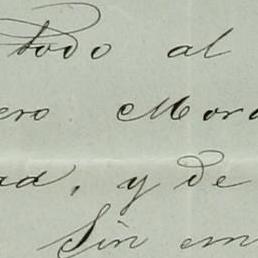 todo al
ero Mora
ad, y de
Sin em